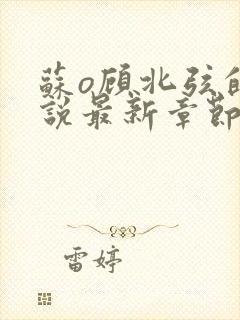 蘇o顾北弦的
說最新章節
雷婷